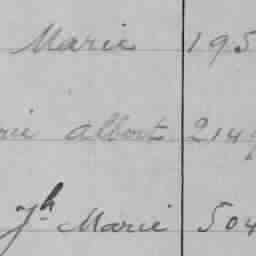 Marie 195
Albert 214
Jh Marie 504